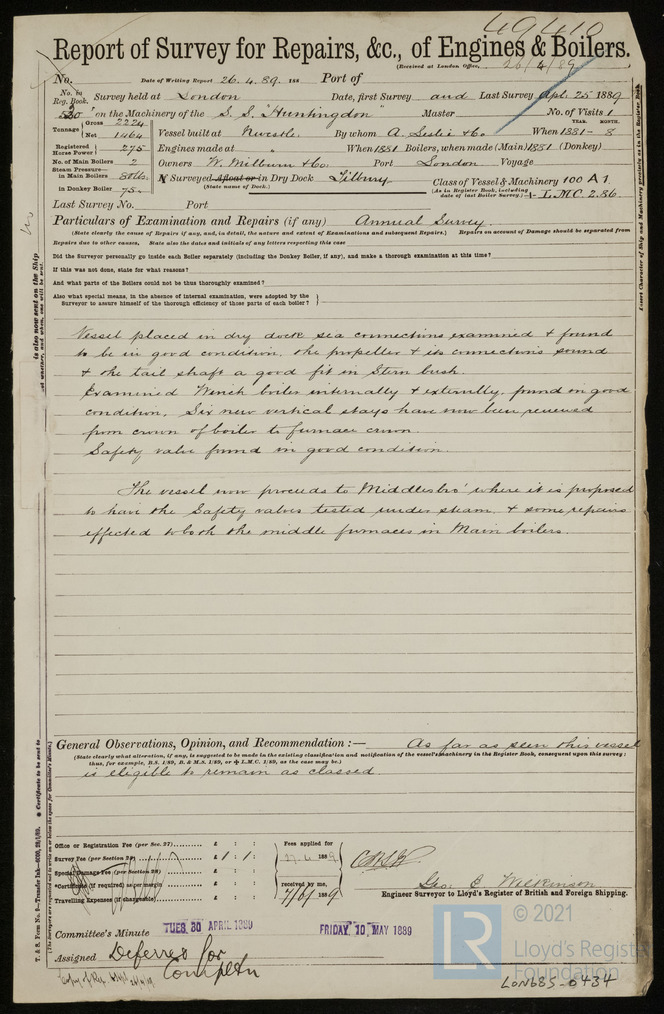 49410
Report of Survey for Repairs, &c., of Engines & Boilers.
(Received at London Office, 26/4/89
No. Date of Writing Report 26.4.89. 188 Port of
No. in Reg. Book. Survey held at London Date, first Survey and Last Survey Apl. 25 1889
520 on the Machinery of the S.S. "Huntingdon" Master No. of Visits 1
Tonnage Gross 2224 Net 1464 Vessel built at Nwcstle. By whom A. Leslie & Co When 1881 - 8 YEAR. MONTH.
Registered Horse Power 275 Engines made at " When 1881 Boilers, when made (Main) 1881 (Donkey)
No. of Main Boilers 2 Owners W. Milburn & Co. Port London Voyage
Steam Pressure in Main Boilers 80lbs. If Surveyed Afloat or in Dry Dock Tilbury Class of Vessel & Machinery 100 A1
(State name of Dock.) (As in Register Book, including date of last Boiler Survey.) + L.M.C. 2.86
in Donkey Boiler 75
Last Survey No. Port
Particulars of Examination and Repairs (if any) Annual Survey.
(State clearly the cause of Repairs if any, and, in detail, the nature and extent of Examinations and subsequent Repairs.) Repairs on account of Damage should be separated from
Repairs due to other causes, State also the dates and initials of any letters respecting this case
Did the Surveyor personally go inside each Boiler separately (including the Donkey Boiler, if any), and make a thorough examination at this time?
If this was not done, state for what reasons?
And what parts of the Boilers could not be thus thoroughly examined?
Also what special means, in the absence of internal examination, were adopted by the
Surveyor to assure himself of the thorough efficiency of those parts of each boiler?
Vessel placed in dry dock sea connections examined & found
to be in good condition, the propeller & its connections sound
& the tail shaft a good fit in Stern bush.
Examined Winch boiler internally & externally, found in good
condition, Six new vertical stays have now been renewed
from crown of boiler to furnace crown.
Safety valve found in good condition.
The vessel now proceeds to Middlesbro' where it is proposed
to have the Safety valves tested under steam, & some repairs
effected to both the middle furnaces in Main boilers.
General Observations, Opinion, and Recommendation :— As far as seen this vessel
(State clearly what alteration, if any, is suggested to be made in the existing classification and notification of the vessel's machinery in the Register Book, consequent upon this survey:
thus, for example, B.S. 1/89, B. & M.S. 1/89, or ✠ L.M.C. 1/89, as the case may be.)
is eligible to remain as classed.
Office or Registration Fee (per Sec. 27) £ : :
Survey Fee (per Section 28) £ 1 : 1 :
Special Damage Fee (per Section 28) £ : :
Certificate (if required) as per margin £ : :
Travelling Expenses (if chargeable) £ : :
Fees applied for
188
received by me,
1889
Geo. E. Wilkinson
Engineer Surveyor to Lloyd's Register of British and Foreign Shipping.
Committee's Minute TUES. 30 APRIL 1889 FRIDAY 10 MAY 1889
Assigned Deferred for
Completn
© 2021
LR
Lloyd's Register
Foundation
LON685-0434